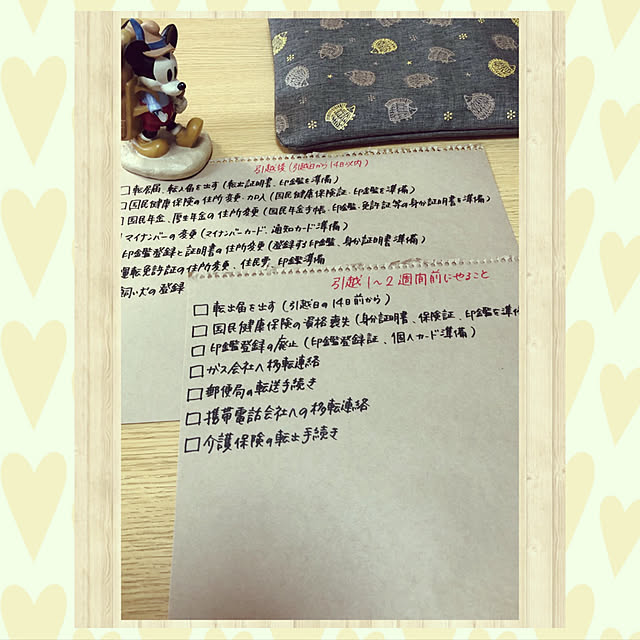 引越後(引越日から14日以内)
□転居届、転入届を出す(転出証明書、印鑑を準備)
□国民健康保険の住所変更・加入(国民健康保険証、印鑑を準備)
□国民年金、厚生年金の住所変更(国民年金手帳、印鑑、免許証等の身分証明書を準備)
マイナンバーの変更(マイナンバーカード、通知カード準備)
印鑑登録と証明書の住所変更(登録する印鑑、身分証明書準備)
運転免許証の住所変更、住民票、印鑑準備
飼い犬の登録
引越1〜2週間前にやること
□転出届を出す(引越日の14日前から)
□国民健康保険の資格喪失(身分証明書、保険証、印鑑を準備
□印鑑登録の廃止(印鑑登録証、個人カード準備)
□ガス会社へ移転連絡
□郵便局の転送手続き
□携帯電話会社への移転連絡
□介護保険の転出手続き